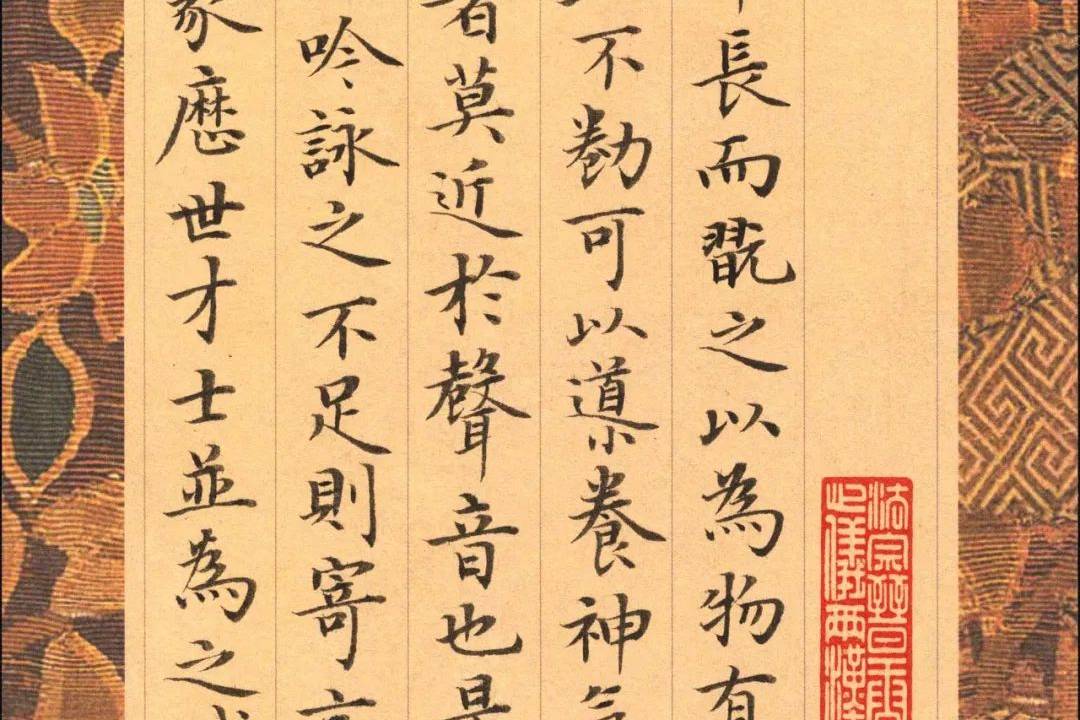 長而翫之以為物有
不勌可以導養神氣
者莫近於聲音也是
吟詠之不足則寄言
象歷世才士並為之